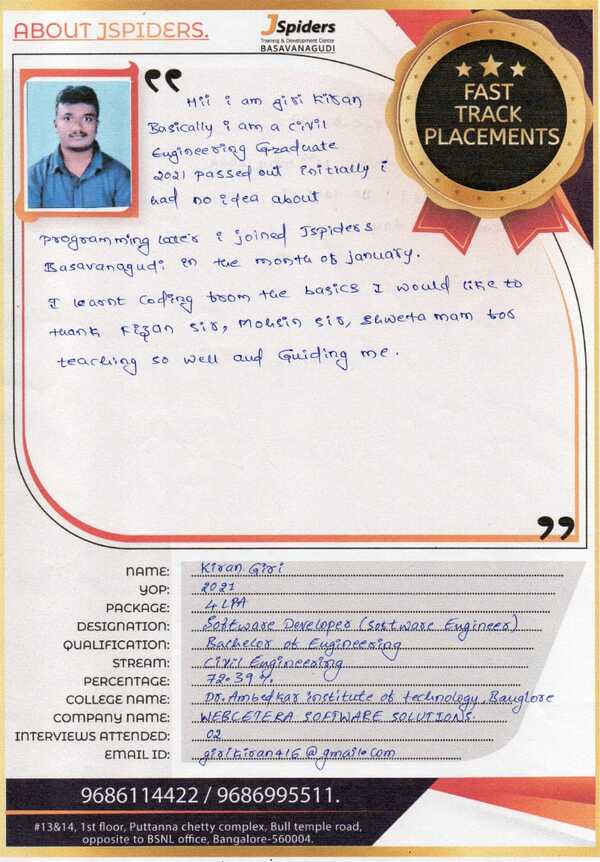 ABOUT JSPIDERS.
JSpiders
Training & Development Center
BASAVANAGUDI
FAST
TRACK
PLACEMENTS
Hii i am giri kiran
Basically i am a civil
Engineering Graduate
2021 passed out initially i
had no idea about
programming later i joined Jspiders
Basavanagudi in the month of january.
I learnt coding from the basics I would like to
thank Kiran sir, Mohsin sir, Shweta mam for
teaching so well and Guiding me.
NAME: Kiran Giri
YOP: 2021
PACKAGE: 4 LPA
DESIGNATION: Software Developer (Software Engineer)
QUALIFICATION: Bachelor of Engineering
STREAM: Civil Engineering
PERCENTAGE: 72.39%
COLLEGE NAME: Dr. Ambedkar institute of technology, Banglore
COMPANY NAME: WEBCETERA SOFTWARE SOLUTIONS
INTERVIEWS ATTENDED: 02
EMAIL ID: girikiran416@gmail.com
9686114422 / 9686995511.
#13&14, 1st floor, Puttanna chetty complex, Bull temple road,
opposite to BSNL office, Bangalore-560004.